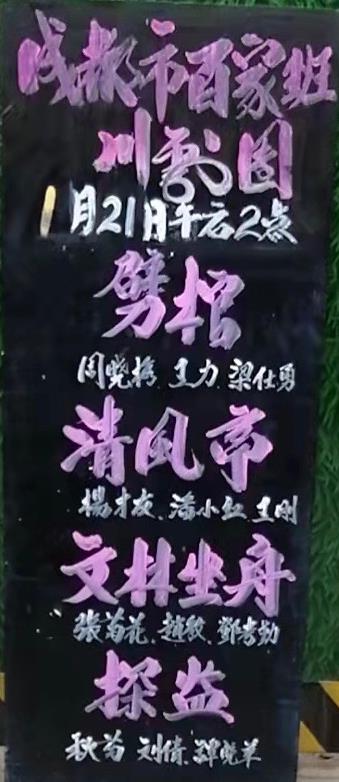 成都市百家班
川剧团
1月21日午后2点
劈棺
周晓梅、王力、梁仕勇
清风亭
楊才友、潘小红、王刚
文林坐舟
張菊花、赵毅、鄧孝勤
探监
秋芳、刘倩、鄭晓羊